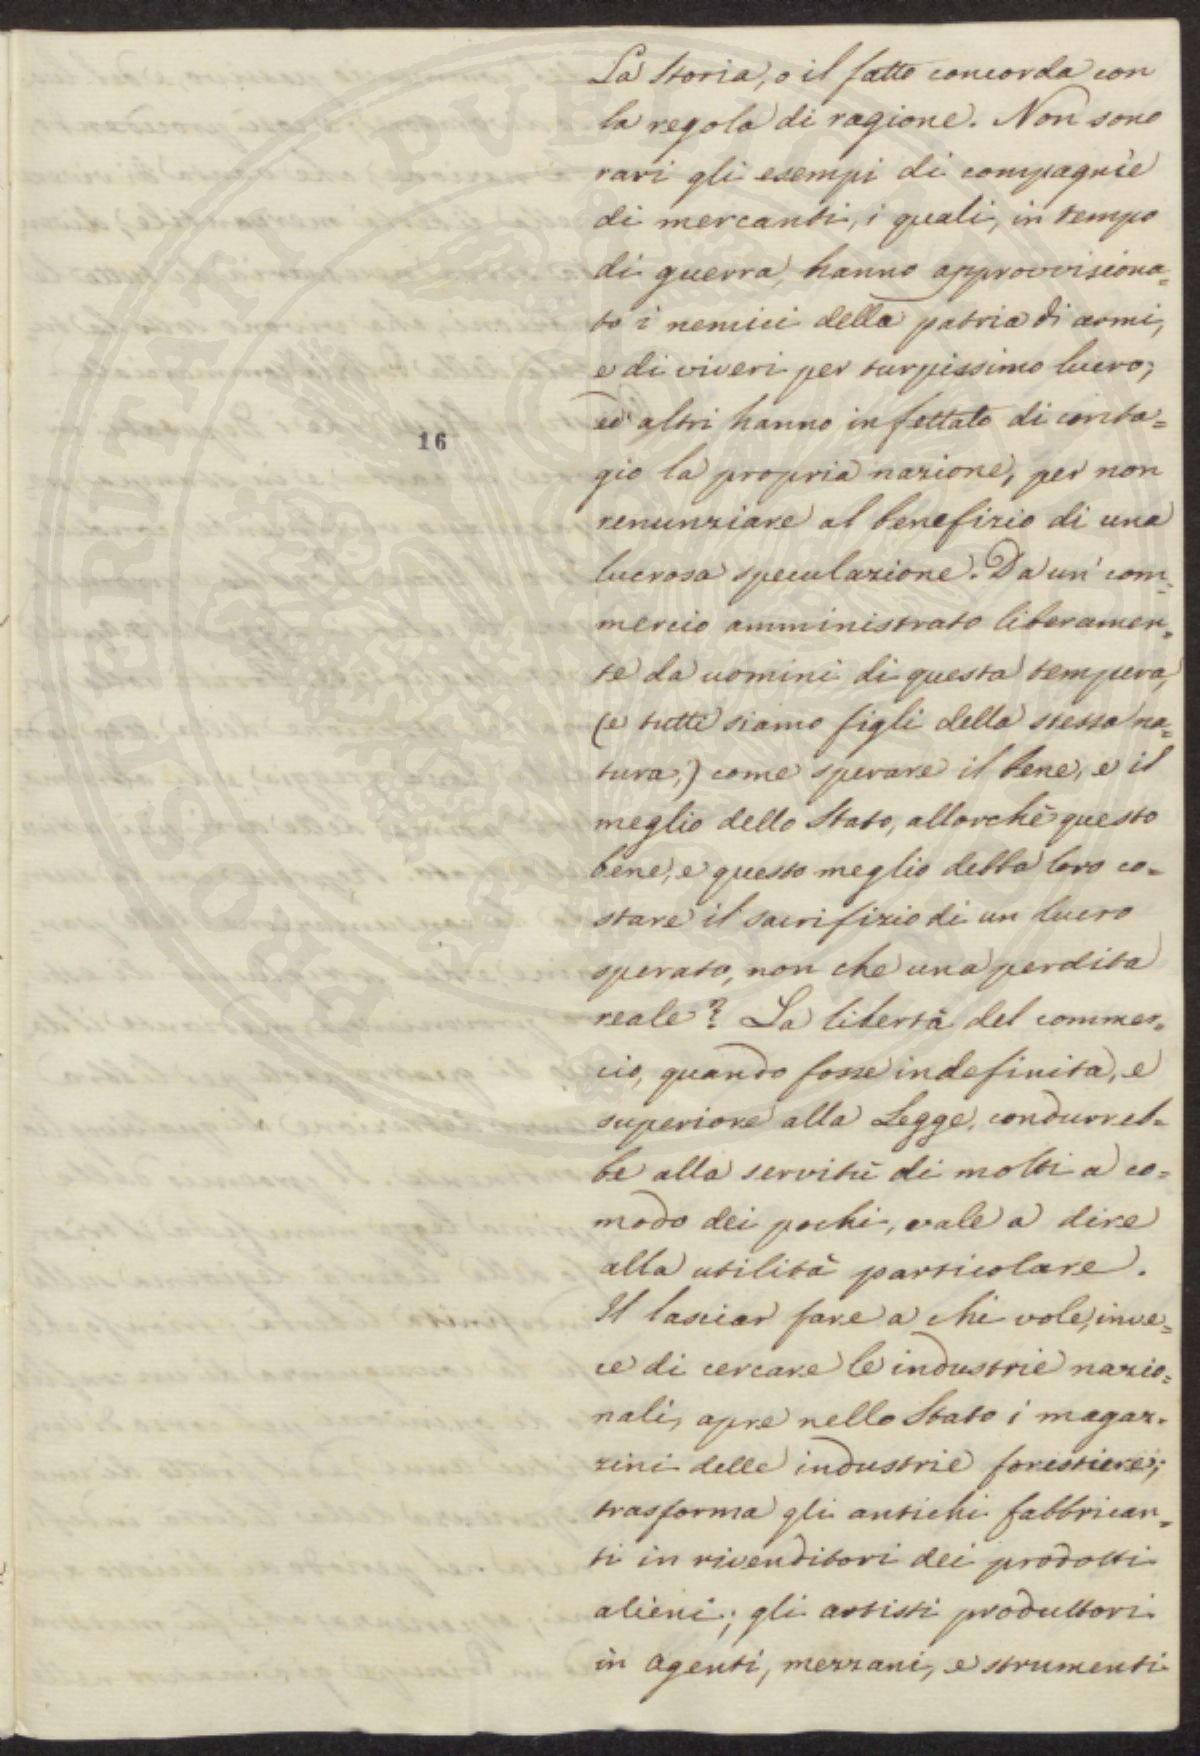 La Storia, o il fatto concorda con
la regola di ragione. Non sono
rari gli esempi di compagnie
di mercanti, i quali, in tempo
di guerra, hanno approvvisiona=
to i nemici della patria di armi,
e di viveri per turpissimo lucro;
ed altri hanno infettato di conta=
gio la propria nazione, per non
renunziare al benefizio di una
lucrosa speculazione. Da un' com=
mercio amministrato liberamen=
te da uomini di questa tempera,
(e tutti siamo figli della stessa na=
tura,) come sperare il bene, e il
meglio dello Stato, allorchè questo
bene, e questo meglio debba loro co=
stare il sacrifizio di un lucro
sperato, non che una perdita
reale? La libertà del commer=
cio, quando fosse indefinita, e
superiore alla Legge, condurreb=
be alla servitù di molti a co=
modo dei pochi, vale a dire
alla utilità particolare.
Il lasciar fare a chi vole, inve=
ce di cercare le industrie nazio=
nali, apre nello Stato i magaz=
zini delle industrie forestiere;
trasforma gli antichi fabbrican=
ti in rivenditori dei prodotti
alieni; gli artisti produttori
in agenti, mezzani, e strumenti
16
PROSPERITATI PVBLICAE